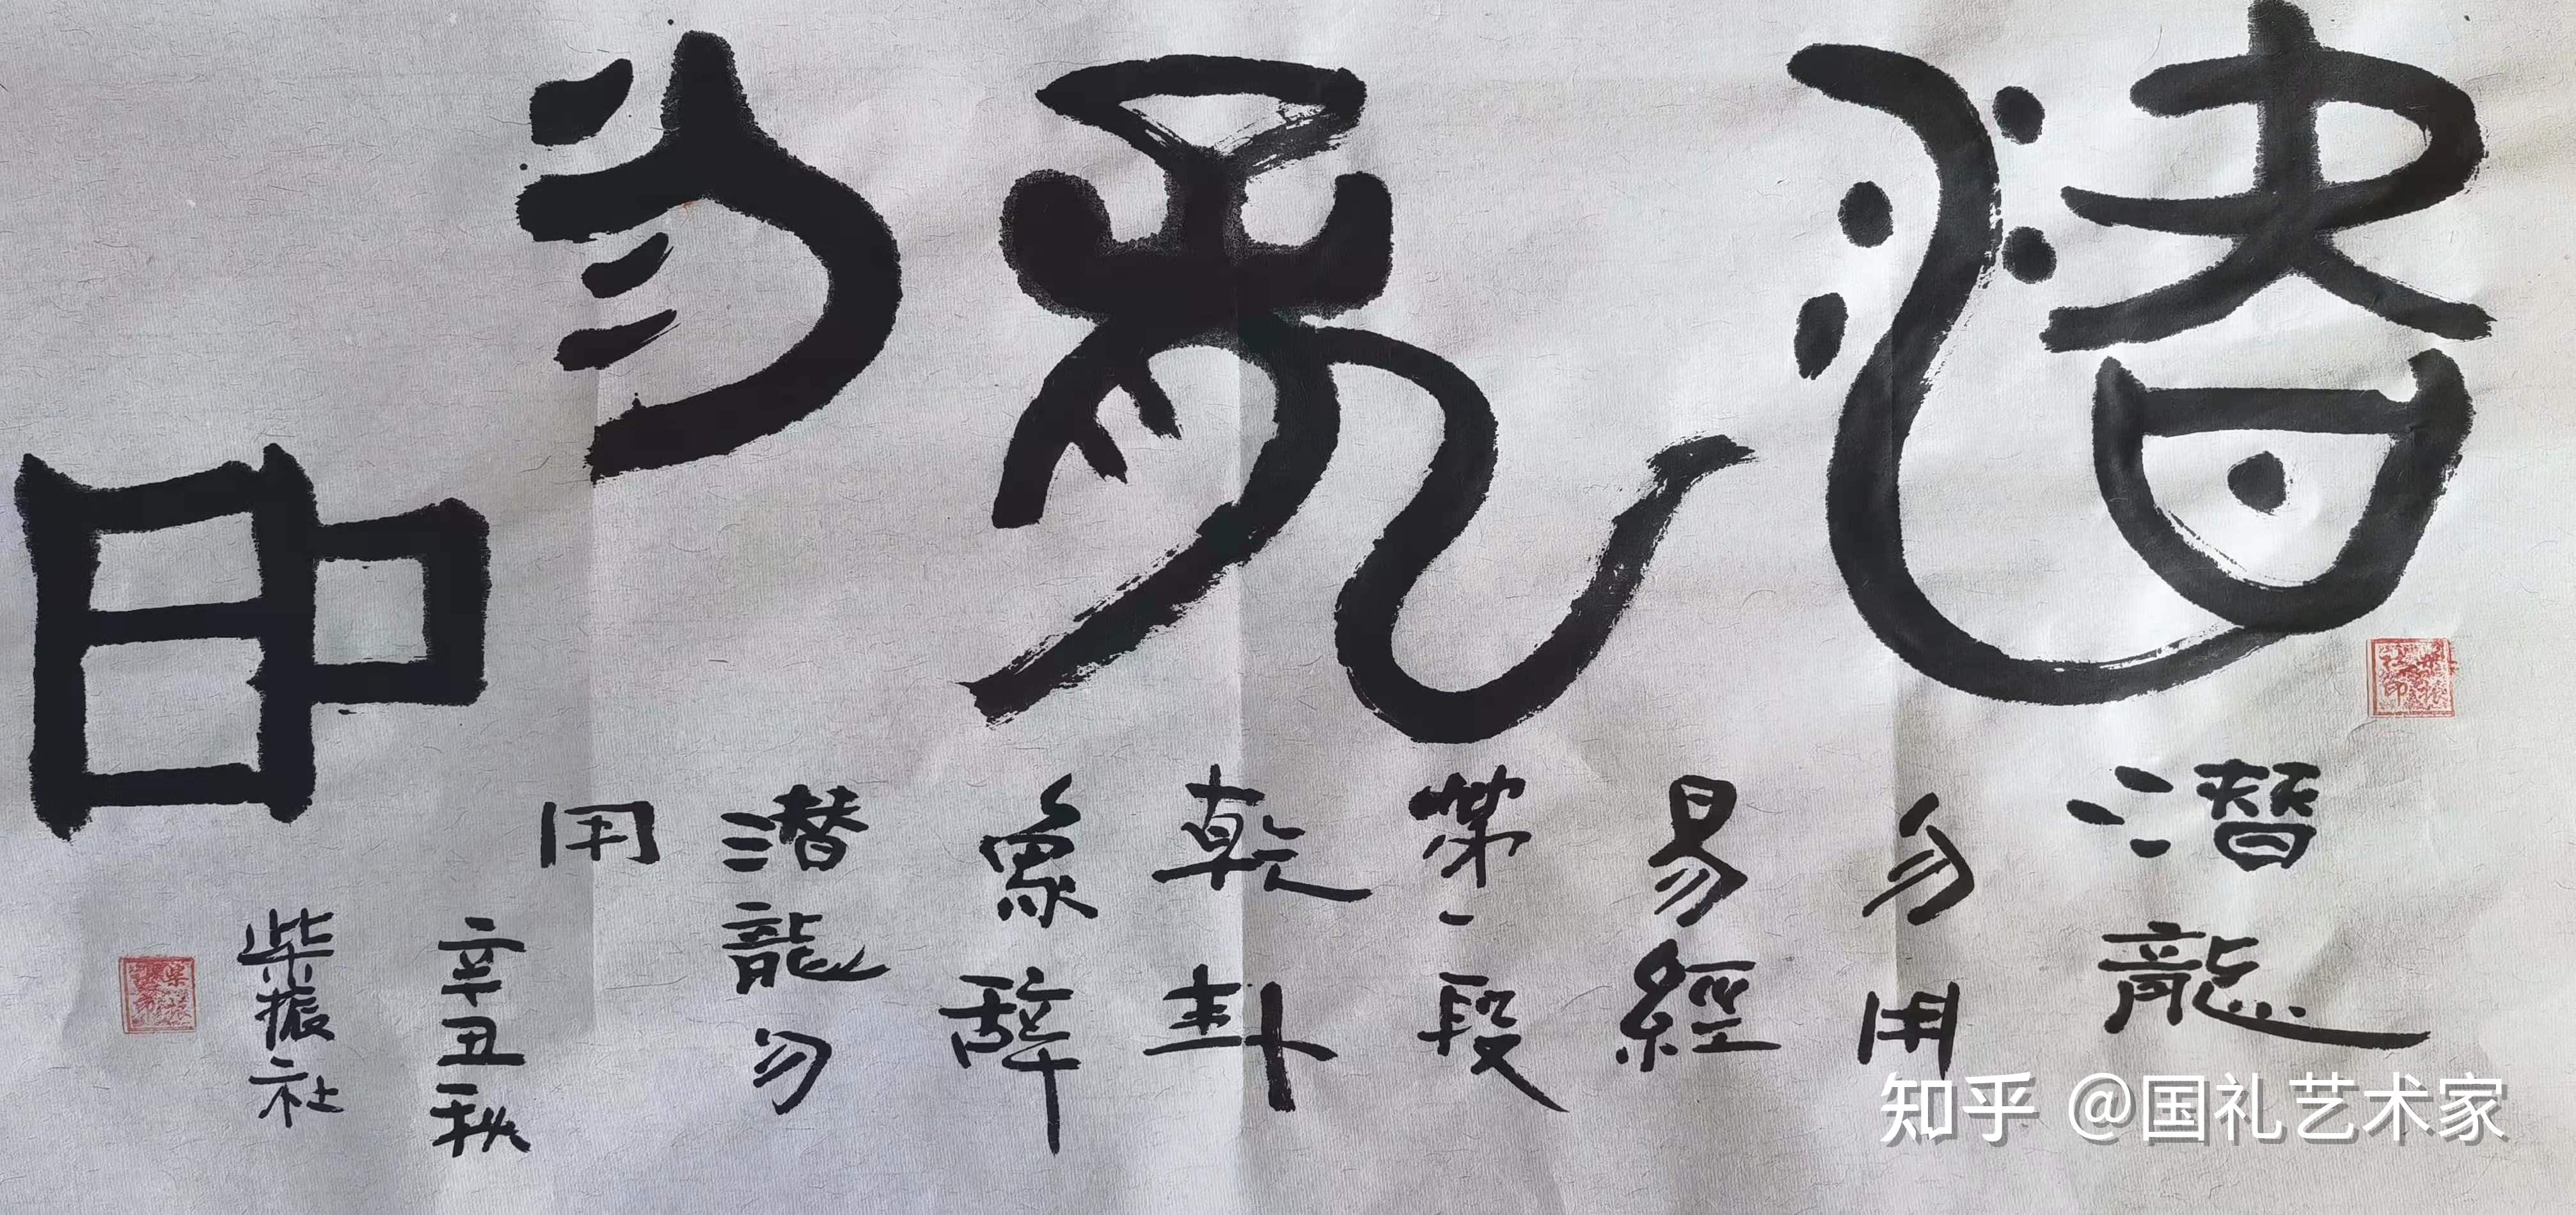 潛龍勿用
潛龍
勿用
易經
第一段
乾卦
象辭
潛龍勿
用
辛丑秋
柴振社
知乎 @国礼艺术家